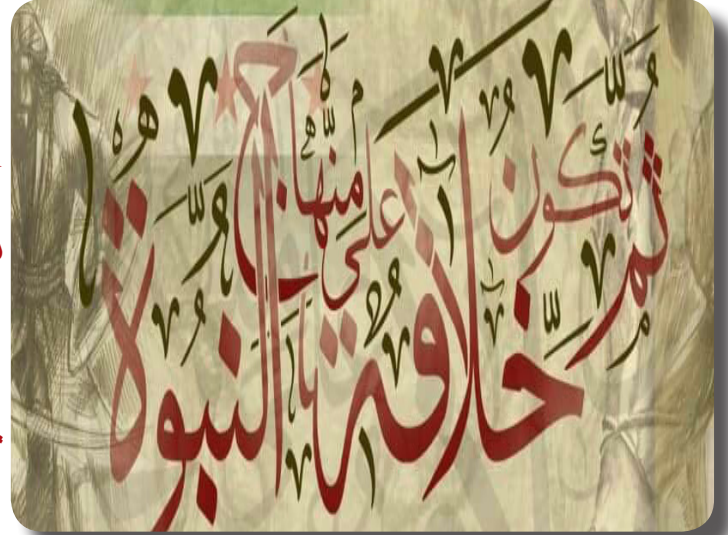 ثم تكون
خلافة على منهاج
النبوة